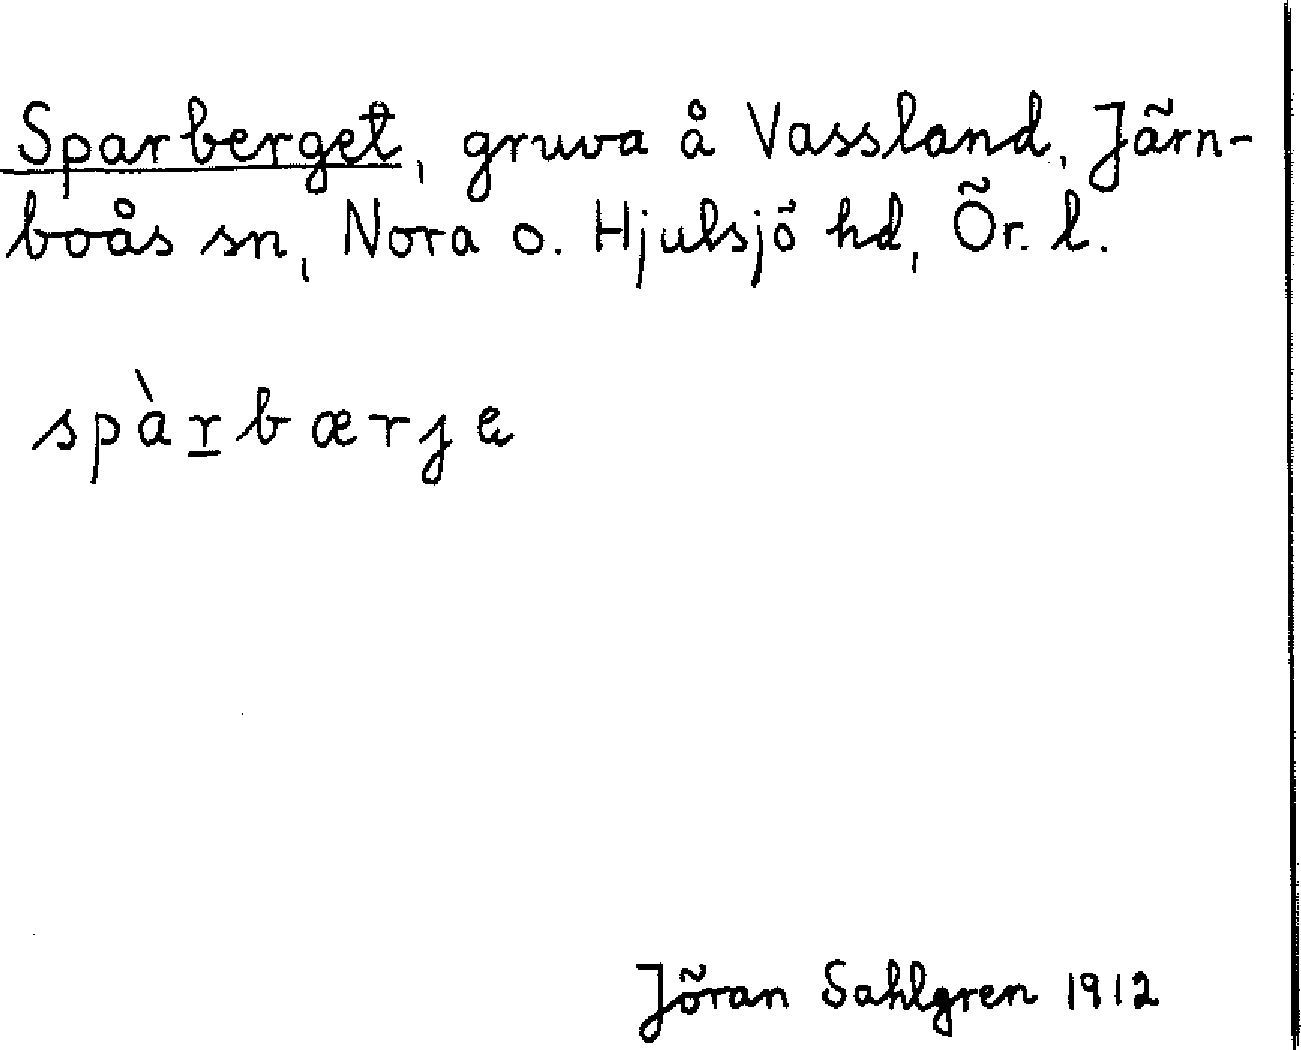 Sparberget, gruva å Vassland, Järn-
boås sn, Nora o. Hjulsjö hd, Ör. l.
spàr̲bærje̢
Jöran Sahlgren 1912